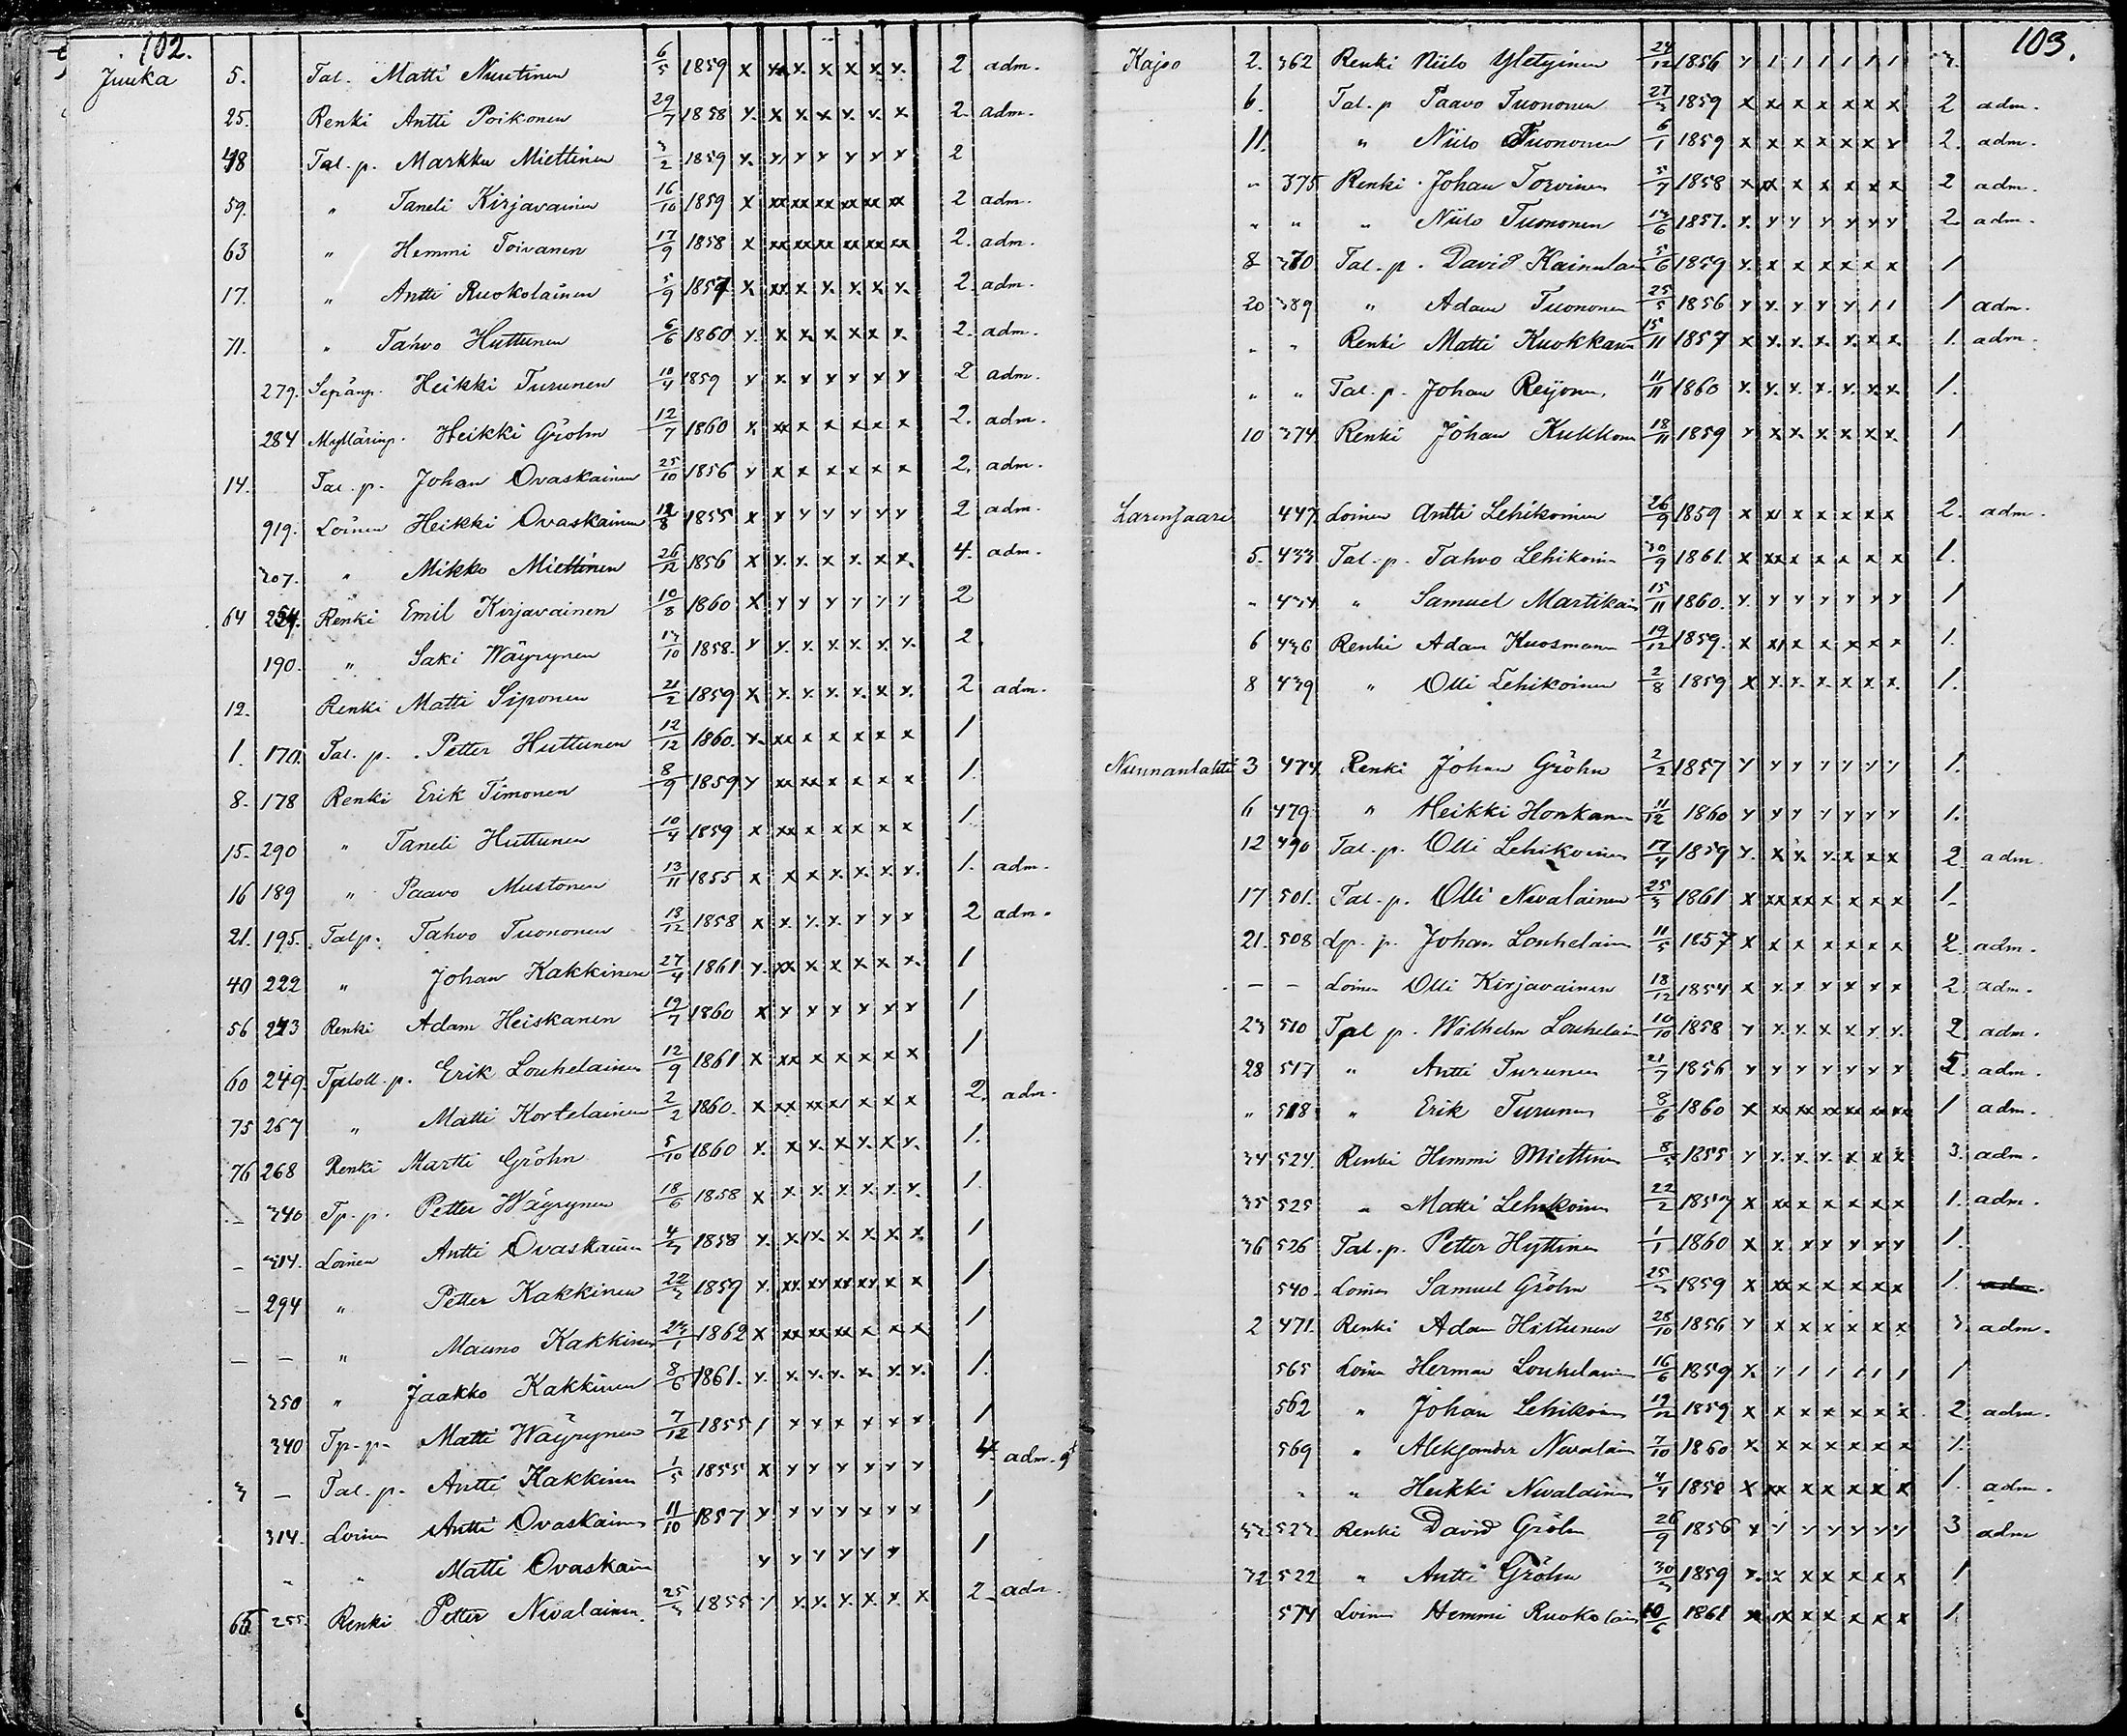 102.
Juuka 5. Tal. Matti Nuutinen 6/5 1859 x x x. x x x x. 2 adm.
25. Renki Antti Poikonen 29/7 1858 x. x x x x. x. x 2. adm.
48 Tal. p. Markku Miettinen 3/2 1859 x. x x x x x x 2
59. " Taneli Kirjavainen 16/10 1859 x xx xx xx xx xx xx 2 adm.
63 " Hemmi Toivanen 17/9 1858 x xx xx xx xx xx xx 2. adm.
17. " Antti Ruokolainen 5/9 1857 x. xx x x. x. x. x. 2. adm.
71. " Tahvo Huttunen 6/6 1860 x. x x x x x x. 2. adm.
279. Sepänp. Heikki Turunen 10/4 1859 x x. x x x x x 2 adm.
284 Myllärinp. Heikki Gröhn 12/7 1860 x. xx x x x x x 2. adm.
14. Tal. p. Johan Ovaskainen 25/10 1856 x x x x x x x 2. adm.
919. Loinen Heikki Ovaskainen 12/8 1855 x x x x x x x 2 adm.
307. " Mikko Miettinen 26/12 1856 x x. x. x x. x x. 4. adm.
64 254. Renki Emil Kirjavainen 10/8 1860 x x x x x x x 2
190. " Saki Wäyrynen 13/10 1858. x x. x. x. x. x. x. 2.
12. Renki Matti Siponen 21/2 1859 x x. x. x. x. x x. 2 adm.
1. 170. Tal. p. Petter Huttunen 12/12 1860. x. xx x x x x x 1
8. 178 Renki Erik Timonen 8/9 1859 x xx xx x x x x 1.
15. 290 " Taneli Huttunen 10/4 1859 x xx x x x x x 1.
16 189 " Paavo Mustonen 13/11 1855 x x x x. x. x. x. 1. adm.
21. 195. Talp. Tahvo Tuononen 13/12 1858 x x. x. x. x x x 2 adm.
40 222 " Johan Kakkinen 27/4 1861 x. xx x x x x x. 1
56 243 Renki Adam Heiskanen 19/7 1860 x x x x x x x 1
60 249. Tal. p. Erik Louhelainen 12/9 1861 x xx x x x x x 1
75 267 " Matti Kortelainen 2/2 1860. x xx xx x x x x 2. adm.
76 268 Renki Martti Gröhn 5/10 1860 x. x x. x x. x x. 1.
– 340 Tp. p. Petter Wäyrynen 18/6 1858 x x x. x. x. x. x. 1.
– 314. Loinen Antti Ovaskainen 4/3 1858 x. x x x x x x 1
– 294 " Petter Kakkinen 22/3 1859 x. xx. xx xx xx x x 1
– – " Mauno Kakkinen 23/1 1862 x xx xx xx x x x 1
350 " Jaakko Kakkinen 8/6 1861. x. x. x. x. x. x. x. 1.
340 Tp. p. Matti Wäyrynen 7/12 1855 / x x x x x x 1
3 – Tal. p. Antti Kakkinen 1/5 1855 x x x x x x x 4. adm.
314. Loinen Antti Ovaskainen 11/10 1857 x. x x x x x x 1
" " Matti Ovaskain x x x x x x 1
65 255. Renki Petter Nevalainen. 25/3 1855 / x. x. x. x. x. x 2. adm.
103.
Kajoo 2. 362 Renki Niilo Yletyinen 24/12 1856 x / / / / / / 3.
6. Tal. p Paavo Tuononen 27/3 1859 x xx x x x x x 2 adm.
11. " Niilo Tuononen 6/1 1859 x x x x x x x 2. adm.
" 375 Renki Johan Torvinen 5/7 1858 x xx x x x x x 2 adm.
" " " Niilo Tuononen 13/6 1857. x. x x x x x x 2. adm.
8 370 Tal. p. David Kainulain 5/6 1859 x. x x x x x x 1
20 389 " Adam Tuononen 25/5 1856 x x. x x x / / 1 adm.
" " Renki Matti Kuokkanen 15/11 1857 x x. x. x. x. x. x. 1. adm.
" " Tal. p. Johan Reijonen 11/11 1860 x. x. x. x. x. x. x. 1.
10 374. Renki Johan Kukkonen 18/11 1859 x x x. x x x x. 1
Larinsaari 447. Loinen Antti Lehikoinen 26/9 1859 x xx x x x x x 2. adm.
5. 433 Tal. p. Tahvo Lehikoinen 30/9 1861. x xx x x x x x 1.
" 434 " Samuel Martikain 15/11 1860. x. x x x x x x 1
6 436 Renki Adam Kuosmanen 19/12 1859. x xx x x x x x 1.
8 439 " Olli Lehikoinen 2/8 1859 x x. x. x. x. x. x. 1.
Nunnanlahti 3 474. Renki Johan Gröhn 2/2 1857 x x x x x x x 1.
6 479 " Heikki Honkanen 11/12 1860 x x x x x x x 1.
12 490 Tal. p. Olli Lehikoinen 17/4 1859 x. x x. x. x x x 2 adm.
17 501. Tal. p. Olli Nevalainen 25/3 1861 x xx xx x x x x 1.
21. 508 Lp. p. Johan Louhelain 11/5 1857 x x x x x x x 2. adm.
– – Loinen Olli Kirjavainen 18/12 1854 x x. x x x x x 2. adm.
23 510 Tal p. Wilhelm Louhelain 10/10 1858 x x. x. x x x. x. 2 adm.
28 517 " Antti Turunen 21/7 1856 x x x x x x x 5. adm.
" 518 " Erik Turunen 8/6 1860 x xx xx xx xx xx xx 1 adm.
34 524. Renki Hemmi Miettinen 8/5 1855 x x. x. x. x x x 3. adm.
35 525 " Matti Lehikoinen 22/2 1857 x xx x x x x x 1. adm.
36 526 Tal. p. Petter Hyttinen 1/1 1860 x x. x x x x x 1.
540. Loinen Samuel Gröhn 25/3 1859 x xx x x x x x 1. adm.
2 471. Renki Adam Huttunen 28/10 1856 x x x x x x x 3. adm.
565 Loinen Herman Louhelain 16/6 1859 x. / / / / / / 1
562 " Johan Lehikoinen 19/12 1859 x x x x x x x. 2. adm.
569 " Aleksander Nevalain 7/10 1860 x x x x x x x 1.
" " Heikki Nevalainen 4/4 1858 x xx x x x x x 1. adm.
32 522 Renki David Gröhn 26/9 1856 x x x x x x x 3 adm
32 522 " Antti Gröhn 30/3 1859 x. x x x x x x 1
574 Loinen Hemmi Ruokolain 10/6 1861 x x x x x x x 1.